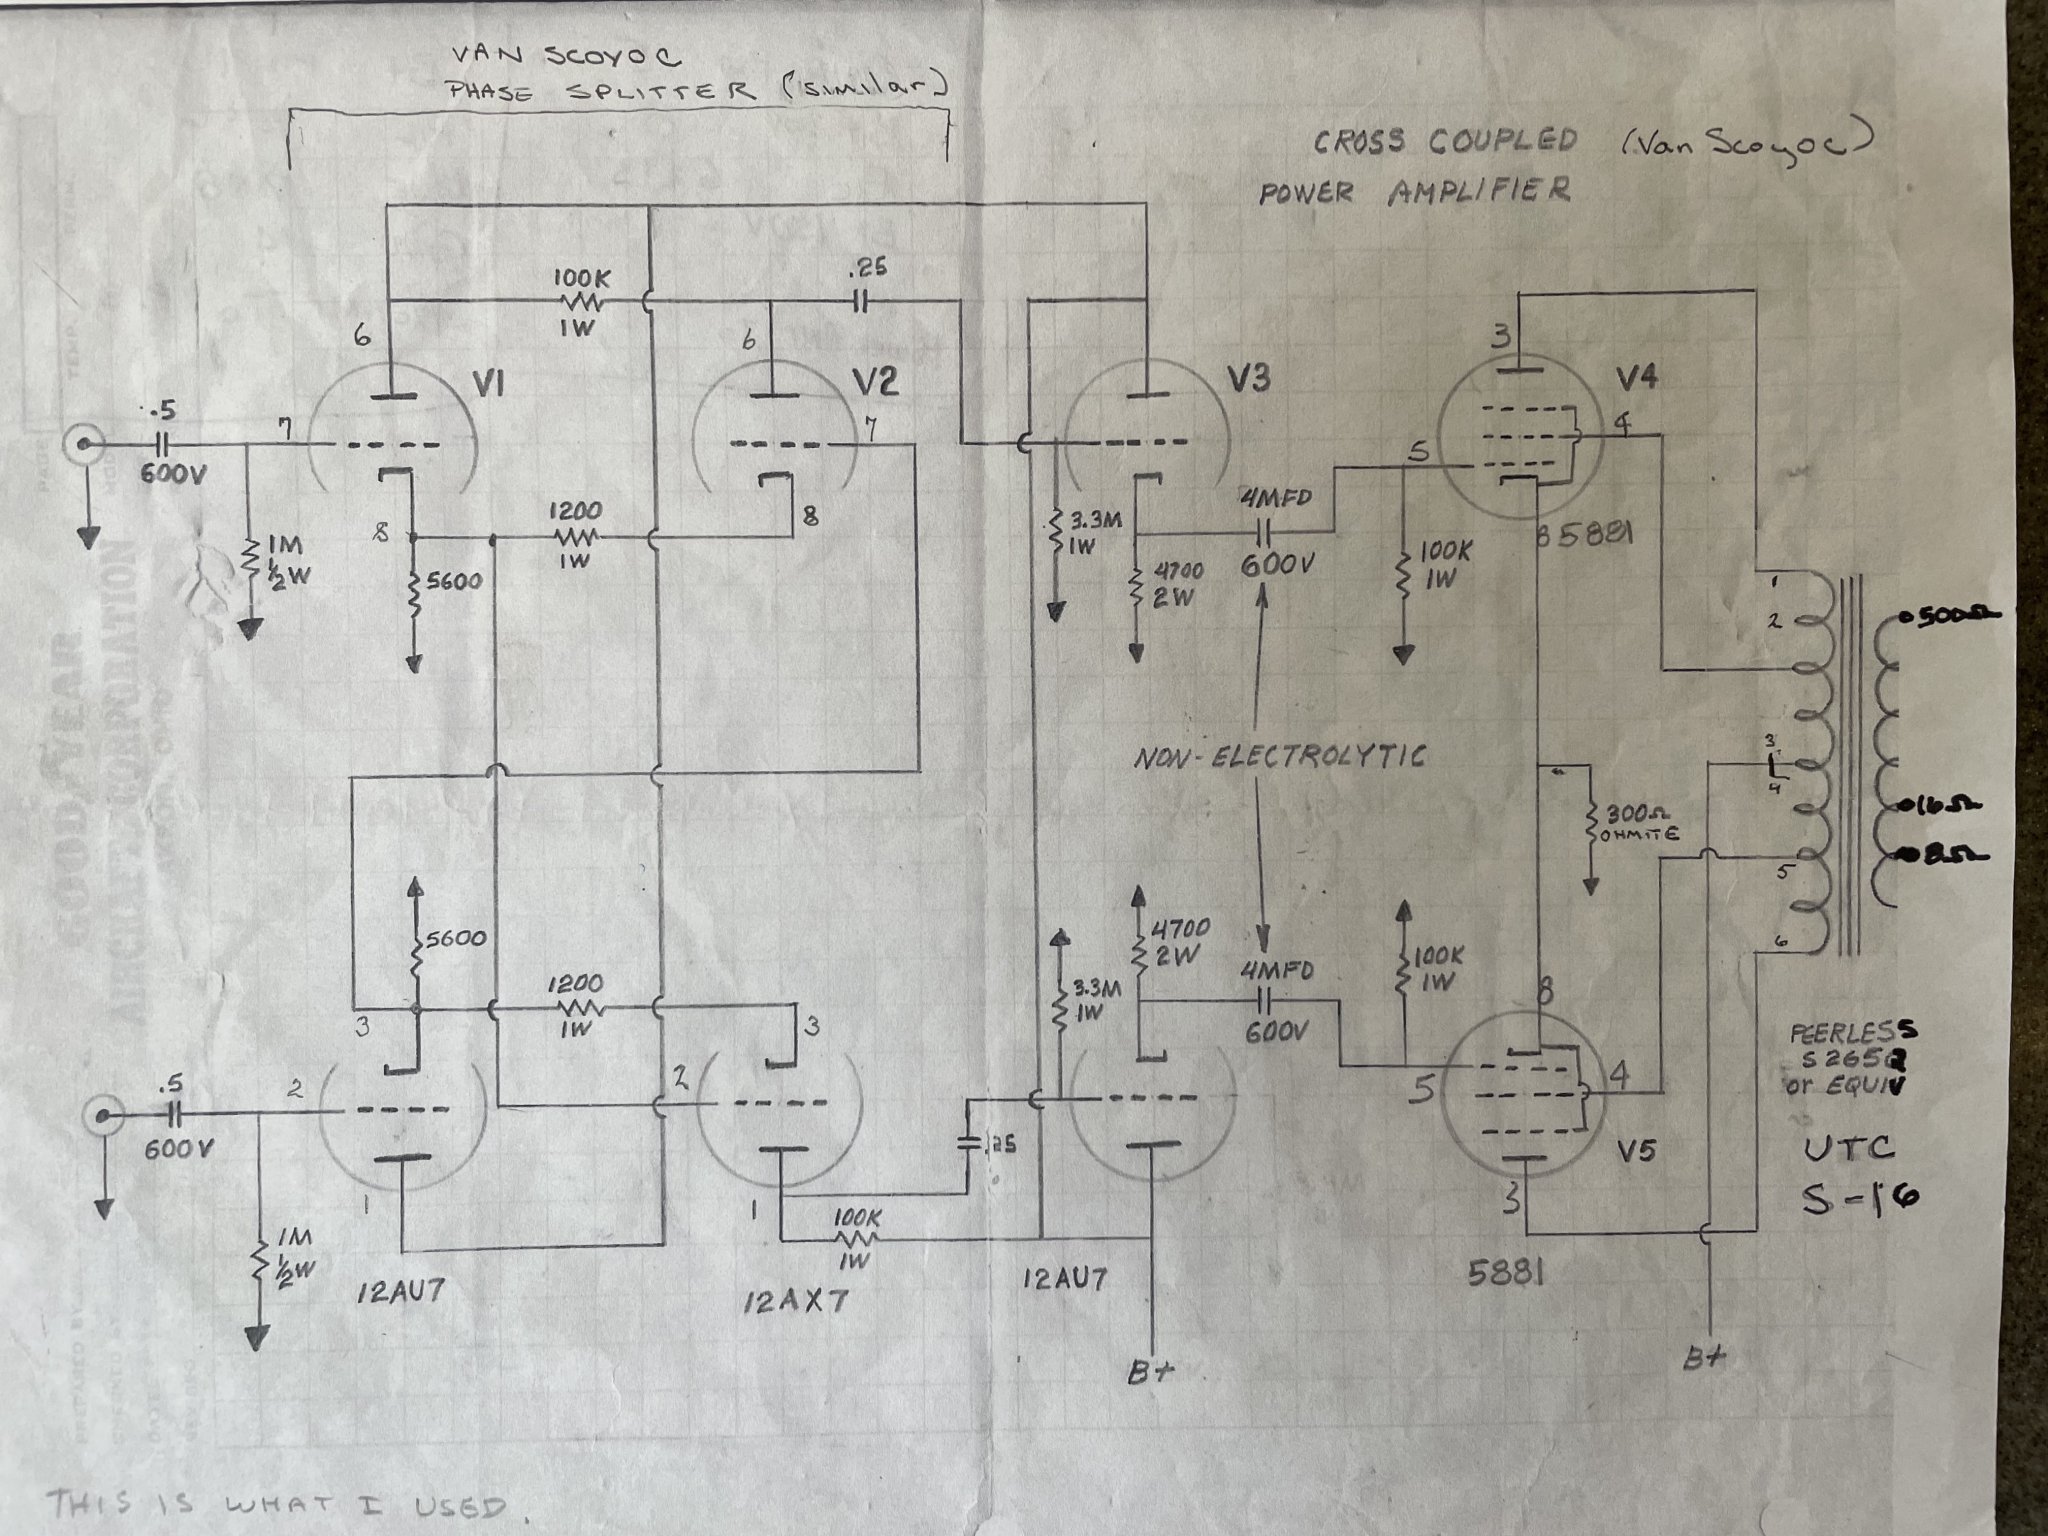 VAN SCOYOC
PHASE SPLITTER (similar)
CROSS COUPLED (Van Scoyoc)
POWER AMPLIFIER
100K
1W
.25
6
6
3
V1
V2
V3
V4
.5
600V
7
7
5
4
1M
½W
8
5600
1200
1W
8
3.3M
1W
4700
2W
4MFD
600V
100K
1W
5881
1
2
500Ω
NON-ELECTROLYTIC
3
4
300Ω
OHMITE
16Ω
8Ω
5
6
5600
1200
1W
3
3
4700
2W
3.3M
1W
4MFD
600V
100K
1W
8
.5
600V
2
2
5
4
V5
PEERLESS
or EQUIV
UTC
S-16
1M
½W
1
1
100K
1W
3
12AU7
12AX7
12AU7
5881
B+
B+
THIS IS WHAT I USED.
GOOD YEAR
AIRCRAFT CORPORATION